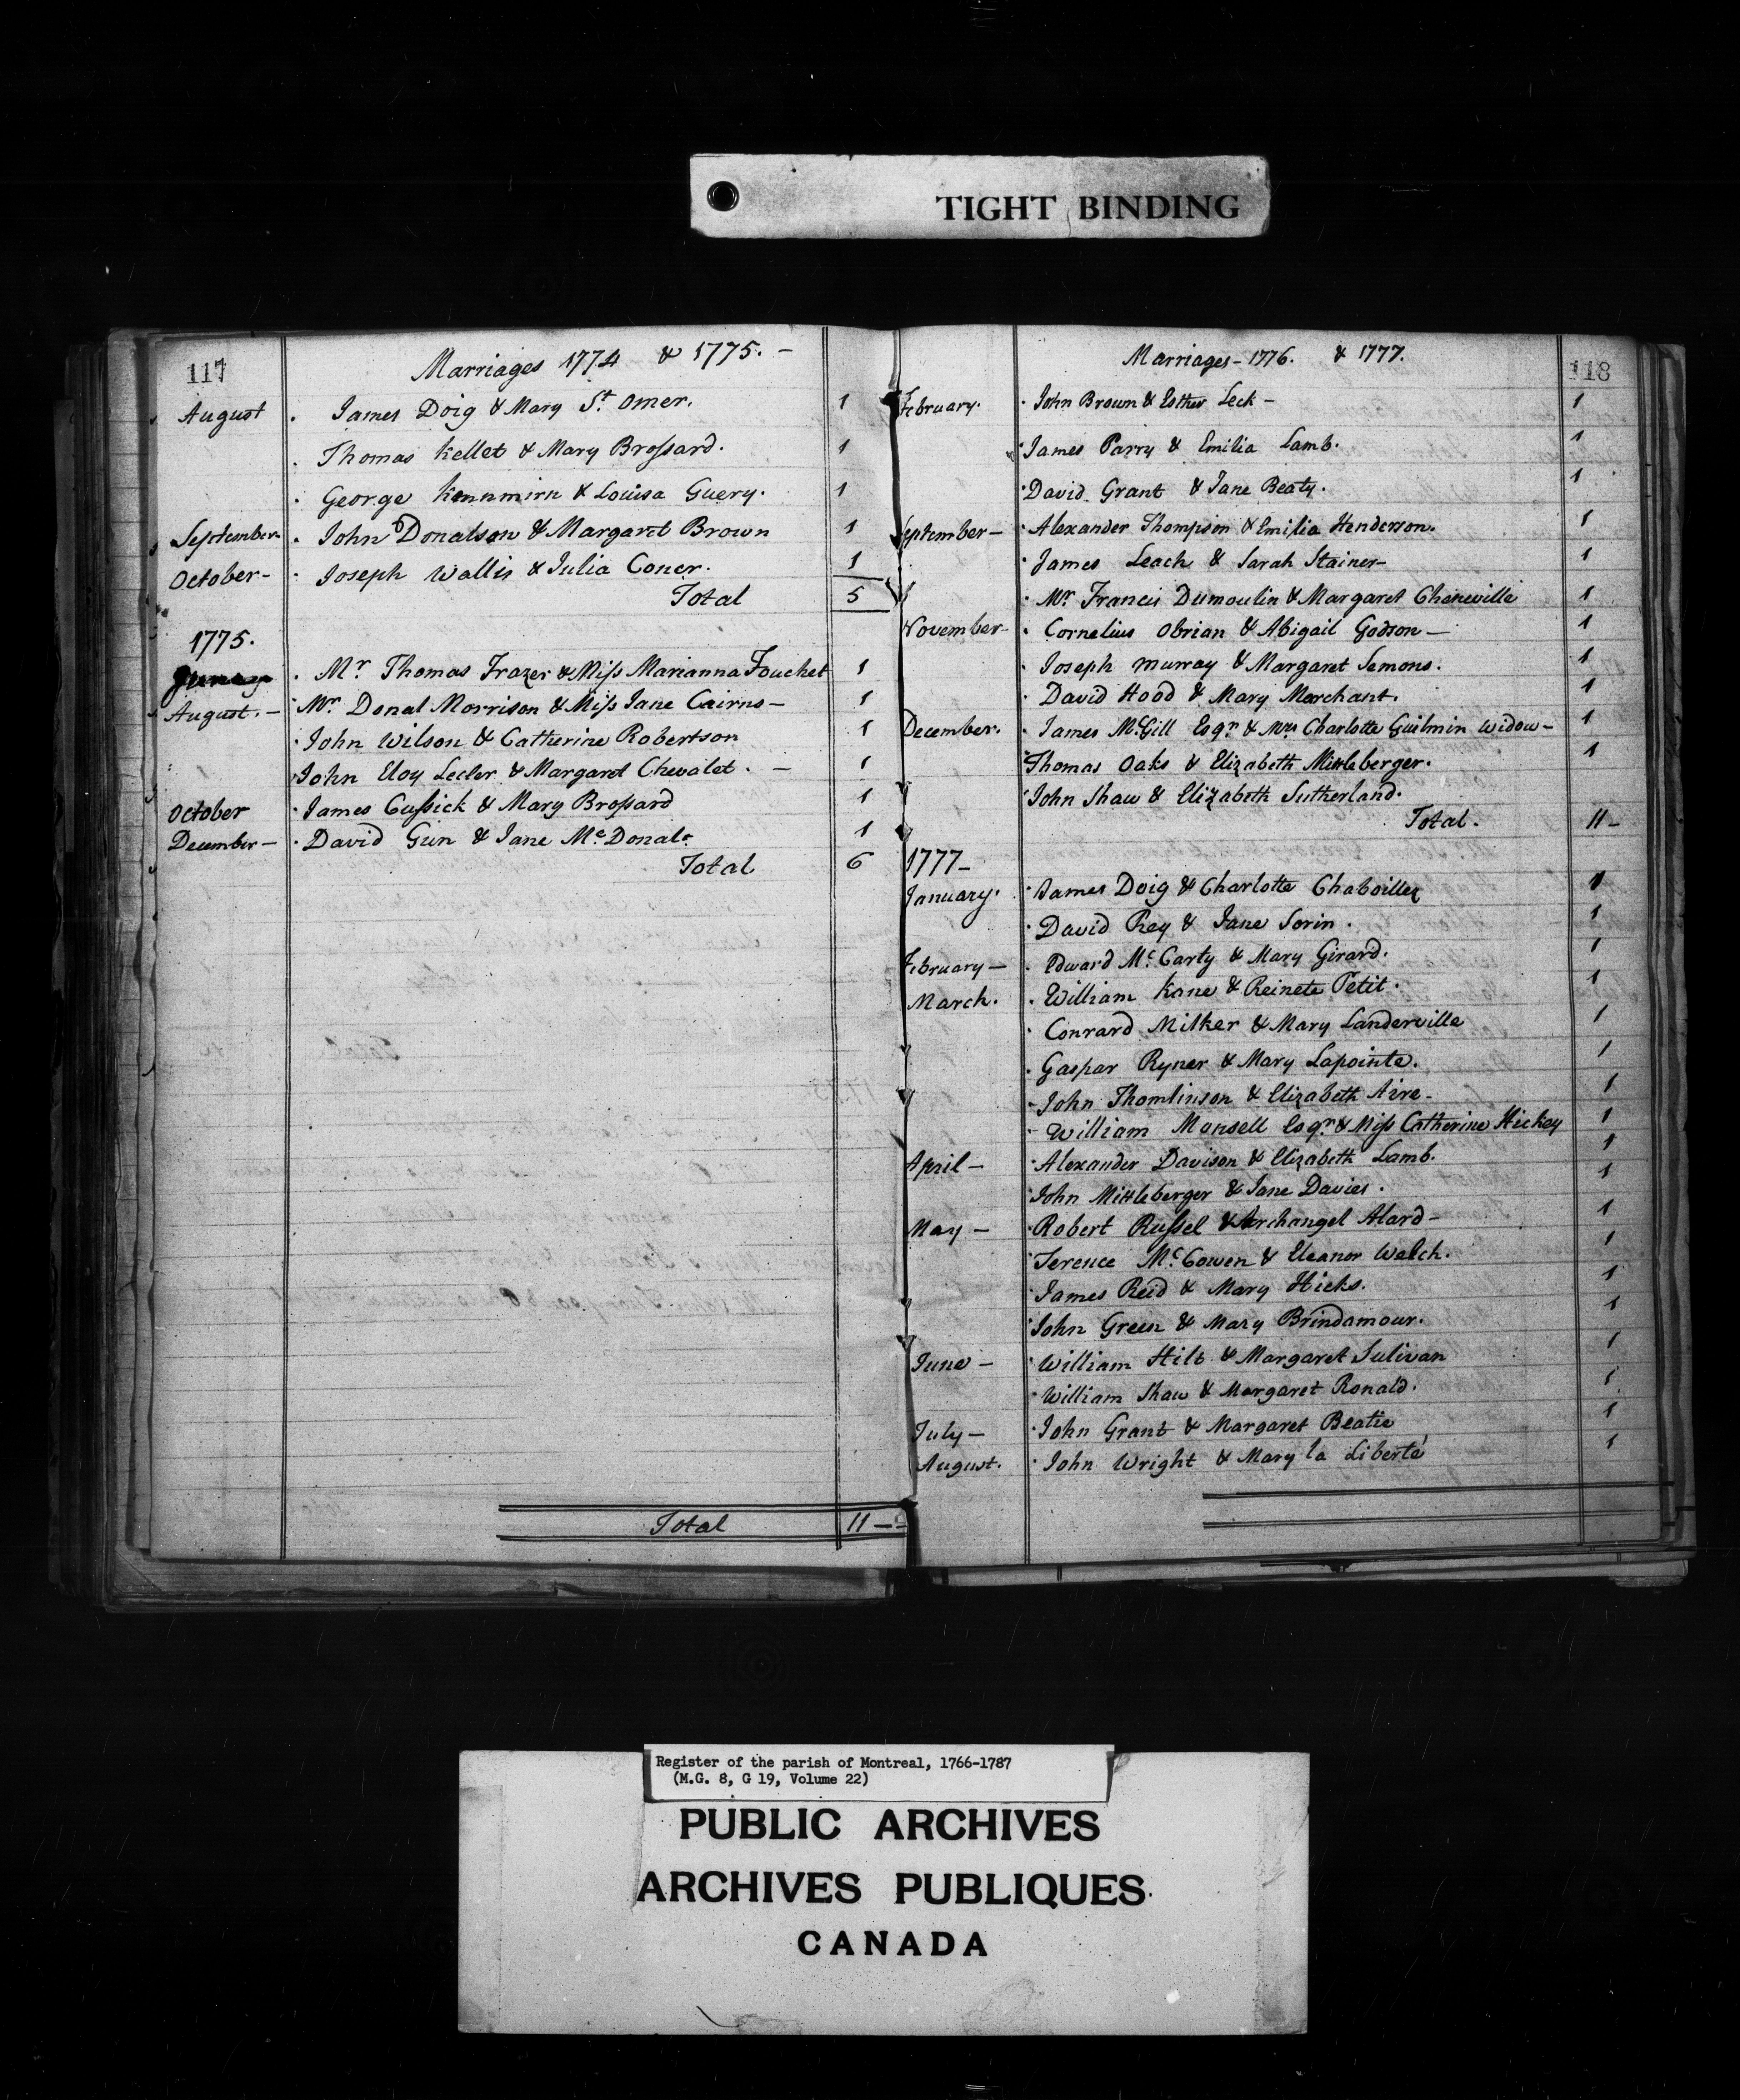 TIGHT BINDING
117
Marriages 1774 & 1775. –
August . James Doig & Mary St. Omer. 1
. Thomas Kellet & Mary Brossard. 1
. George & Louisa Guery. 1
September . John Donalson & Margaret Brown 1
October – . Joseph Wallis & Julia Coner. 1
Total 5
1775.
. Mr Thomas Frazer & Miss Marianna Fouchet 1
August. – . Mr. Donal Morrison & Miss Jane Cairns – 1
. John Wilson & Catherine Robertson 1
. John Eloy Lecler & Margaret Chevalet. – 1
October . James Cussick & Mary Brossard 1
December – . David Gun & Jane Mc. Donald. 1
Total 6
Total 11 –
118
Marriages – 1776. & 1777.
February. . John Brown & Esther Leck – 1
. James Parry & Emilia Lamb. 1
. David Grant & Jane Beaty. 1
September – . Alexander Thompson & Emilia Henderson. 1
. James Leach & Sarah Stainer – 1
. Mr. Francis Dumoulin & Margaret Cheneville 1
November – . Cornelius Obrian & Abigail Godson – 1
. Joseph Murray & Margaret Semons. 1
. David Hood & Mary Marchant. 1
December. . James Mc.Gill Esqr. & Mrs Charlotte Guilmin Widow – 1
. Thomas Oaks & Elizabeth Mittleberger. 1
. John Shaw & Elizabeth Sutherland.
Total. 11 –
1777 –
January. . James Doig & Charlotte Chaboillez 1
. David Ray & Jane Sorin. 1
February – . Edward Mc. Carty & Mary Girard. 1
March. . William Kane & Reinete Petit. 1
. Conrard Milker & Mary Landerville 1
. Gaspar Ryner & Mary Lapointe. 1
. John Thomlinson & Elizabeth Aire – 1
. William Mansell Esqr. & Miss Catherine Hickey 1
April – . Alexander Davison & Elizabeth Lamb. 1
. John Mittleberger & Jane Davies. 1
May – . Robert Russel & Archangel Alard – 1
. Terence Mc. Cowen & Eleanor Welch. 1
. James Reid & Mary Hicks. 1
. John Green & Mary Brindamour. 1
June – . William Hilt & Margaret Sulivan 1
. William Shaw & Margaret Ronald. 1
July – . John Grant & Margaret Beatie 1
August. . John Wright & Mary la Liberté 1
Register of the parish of Montreal, 1766-1787
(M.G. 8, G 19, Volume 22)
PUBLIC ARCHIVES
ARCHIVES PUBLIQUES
CANADA